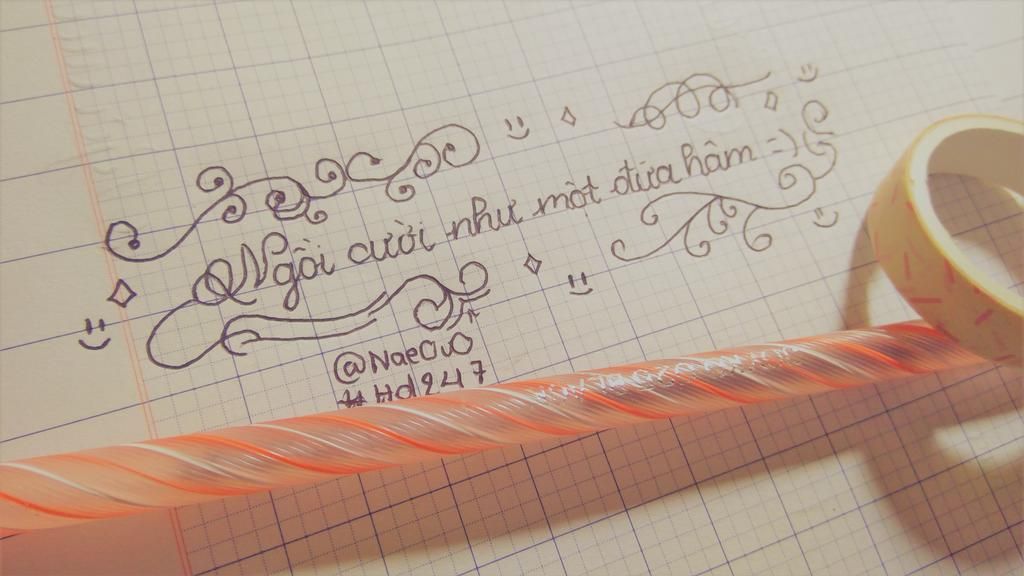 Ngồi cười như một đứa hâm =)
@NaeOvO
#Hd247